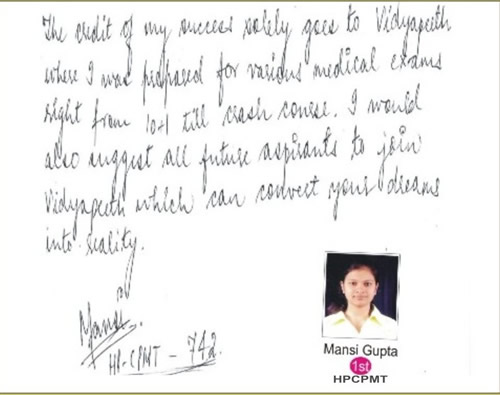 The credit of my success solely goes to Vidyapeeth
where I was prepared for various medical exams
right from 10+1 till crash course. I would
also suggest all future aspirants to join
Vidyapeeth which can convert your dreams
into reality.
Mansi
HP-CPMT - 742.
Mansi Gupta
1st
HPCPMT